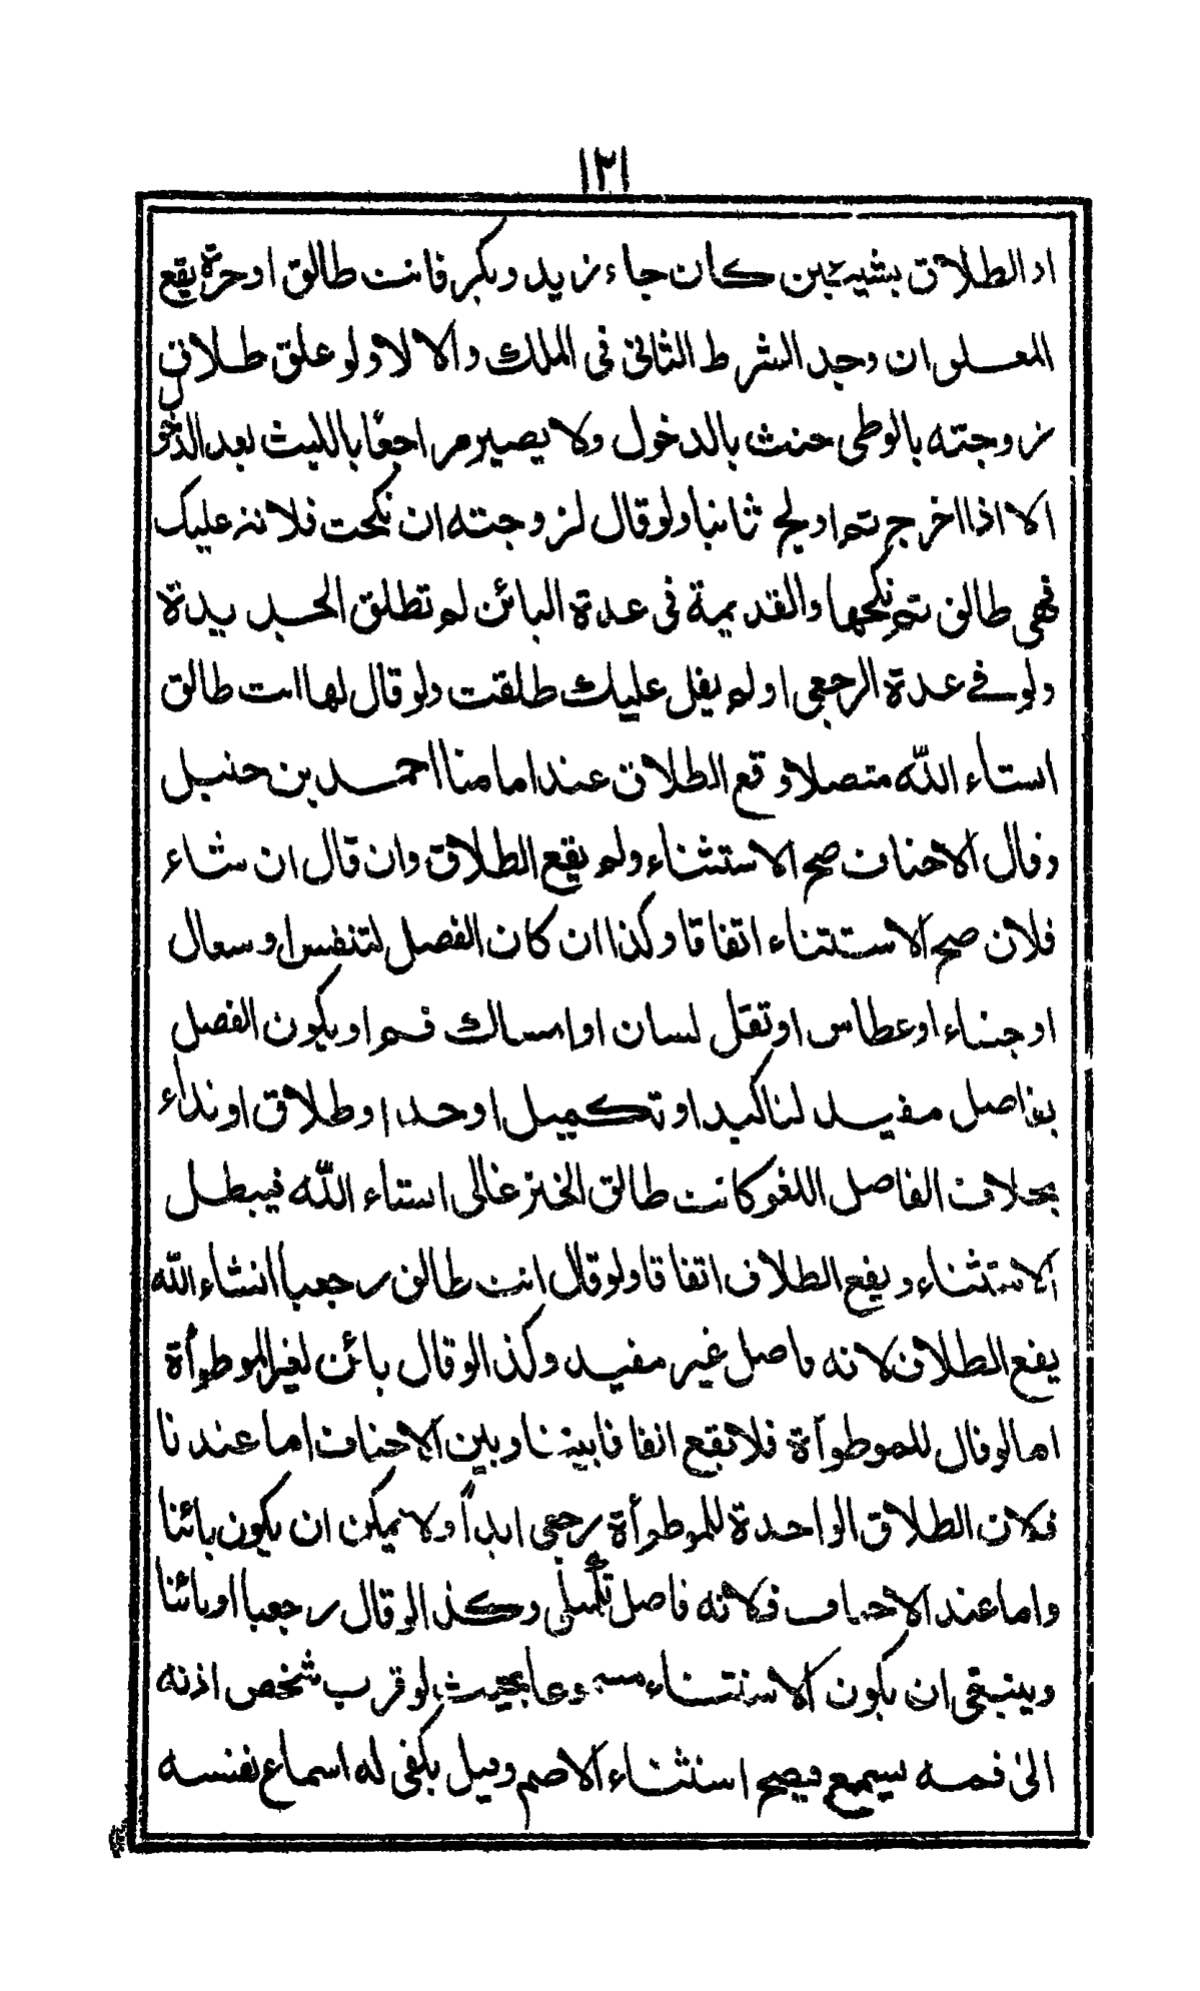 ١٢١
او الطلاق بشيئين كان جاء زيد وبكر فانت طالق او حرة يقع
المعلق ان وجد الشرط الثانى فى الملك والا لا ولو علق طلاق
زوجته بالوطى حنث بالدخول ولا يصير مراجعا باللبث بعد الدخول
الا اذا اخرج ثم اولج ثانيا ولو قال لزوجته ان نكحت فلانة عليك
فهى طالق ثم نكحها والقديمة فى عدة البائن لم تطلق الجديدة
ولو فى عدة الرجعى او لم يقل عليك طلقت ولو قال لها انت طالق
انشاء الله متصلا وقع الطلاق عند امامنا احمد بن حنبل
وقال الاحناف صح الاستثناء ولم يقع الطلاق وان قال ان شاء
فلان صح الاستثناء اتفاقا وكذا ان كان الفصل لتنفس او سعال
او جشاء او عطاس او ثقل لسان او امساك فم او يكون الفصل
بفاصل مفيد لتاكيد او تكميل او حد او طلاق او نداء
بخلاف الفاصل اللغو كانت طالق الخنزغالى انشاء الله فيبطل
الاستثناء ويقع الطلاق اتفاقا ولو قال انت طالق رجعيا انشاء الله
يقع الطلاق لانه فاصل غير مفيد وكذا لو قال بائن لغير الموطوأة
اما لو قال للموطوأة فلا يقع اتفاقا بيننا وبين الاحناف اما عندنا
فلان الطلاق الواحدة للموطوأة رجعى ابداً ولا يمكن ان يكون بائنا
واما عند الاحناف فلانه فاصل تكميلى وكذا لو قال رجعيا او بائنا
وينبغى ان يكون الاستثناء مسموعا بحيث لو قرب شخص اذنه
الى فمه يسمع فيصح استثناء الاصم وقيل يكفى له اسماع نفسه